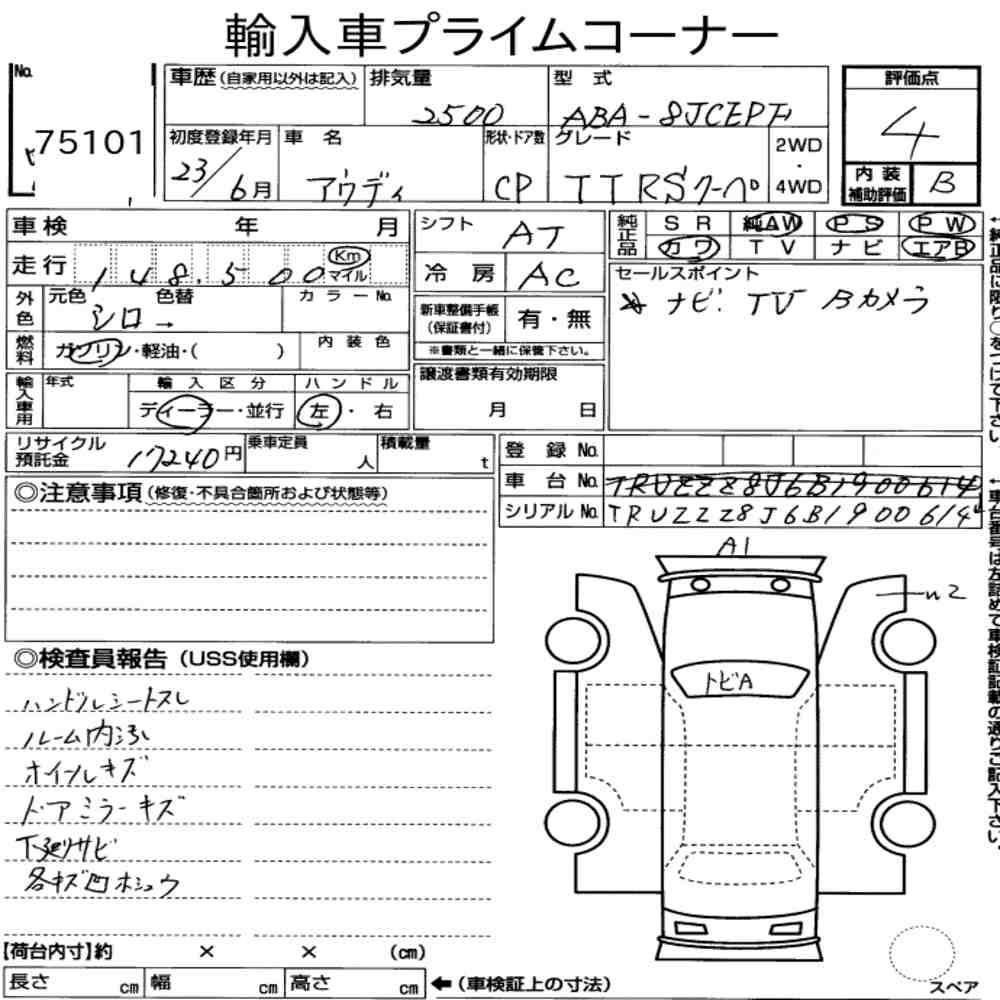 輸入車プライムコーナー
No. 75101
車歴 (自家用以外は記入)
排気量 2500
型式 ABA-8JCEPF
評価点 4
初度登録年月 23/6月
車名 アウディ
形状・ドア数 CP
グレード TTRSクーペ
2WD・4WD
内装補助評価 B
車検 年 月
シフト AT
純正品 SR 純AW PS PW
カワ TV ナビ エアB
走行 148,500 Km マイル
冷房 AC
セールスポイント
ナビ. TV Bカメラ
外色 元色 色替 カラーNo.
シロ→
新車整備手帳(保証書付) 有・無
※書類と一緒に保管下さい。
燃料 ガソリン・軽油・( ) 内装色
譲渡書類有効期限
月 日
輸入車用 年式 輸入区分 ハンドル
ディーラー・並行 左・右
リサイクル預託金 17240円
乗車定員 人
積載量 t
登録No.
車台No. TRUZZZ8J6B1900614
シリアルNo. TRUZZZ8J6B1900614
◎注意事項 (修復・不具合箇所および状態等)
◎検査員報告 (USS使用欄)
ハンドルシートスレ
ルーム内汚れ
ホイールキズ
ドアミラーキズ
下廻サビ
各キズ凹ホシュウ
A1
トビA
【荷台内寸】約 × × (cm)
長さ cm 幅 cm 高さ cm ←(車検証上の寸法)
スペア
←純正品に限り○をつけて下さい。
←車台番号は左詰めで車検証記載の通りご記入下さい。